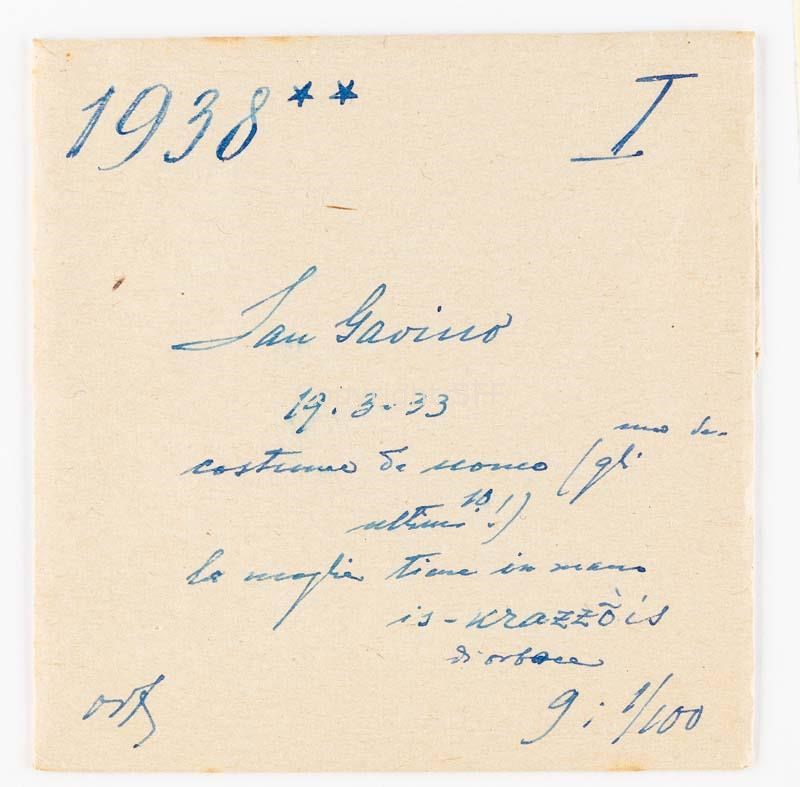 1938** I
San Gavino
19.3.33
costume di uomo (gli
uno de-
ultimi 10!)
la moglie tiene in mano
is-krazzòis
di orbace
orf
9 : 1/100